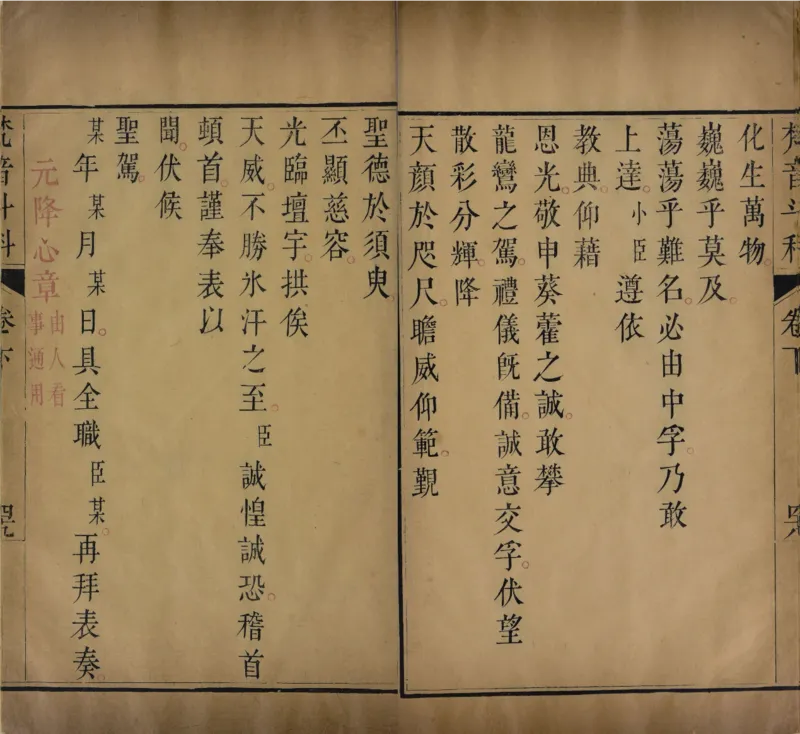 梵音斗科 卷下
化生萬物。
巍巍乎莫及。
蕩蕩乎難名。必由中孚。乃敢
上達。小臣遵依
教典。仰藉
恩光。敬申葵藿之誠。敢攀
龍鸞之駕。禮儀旣備。誠意交孚。伏望
散彩分輝。降
天顏於咫尺。瞻威仰範。覲
聖德於須臾。
丕顯慈容。
光臨壇宇。拱俟
天威。不勝氷汗之至。臣誠惶誠恐。稽首
頓首。謹奉表以
聞。伏候
聖駕。
某年某月某日。具全職臣某。再拜表奏。
元降心章由人看事通用
梵音斗科 卷下